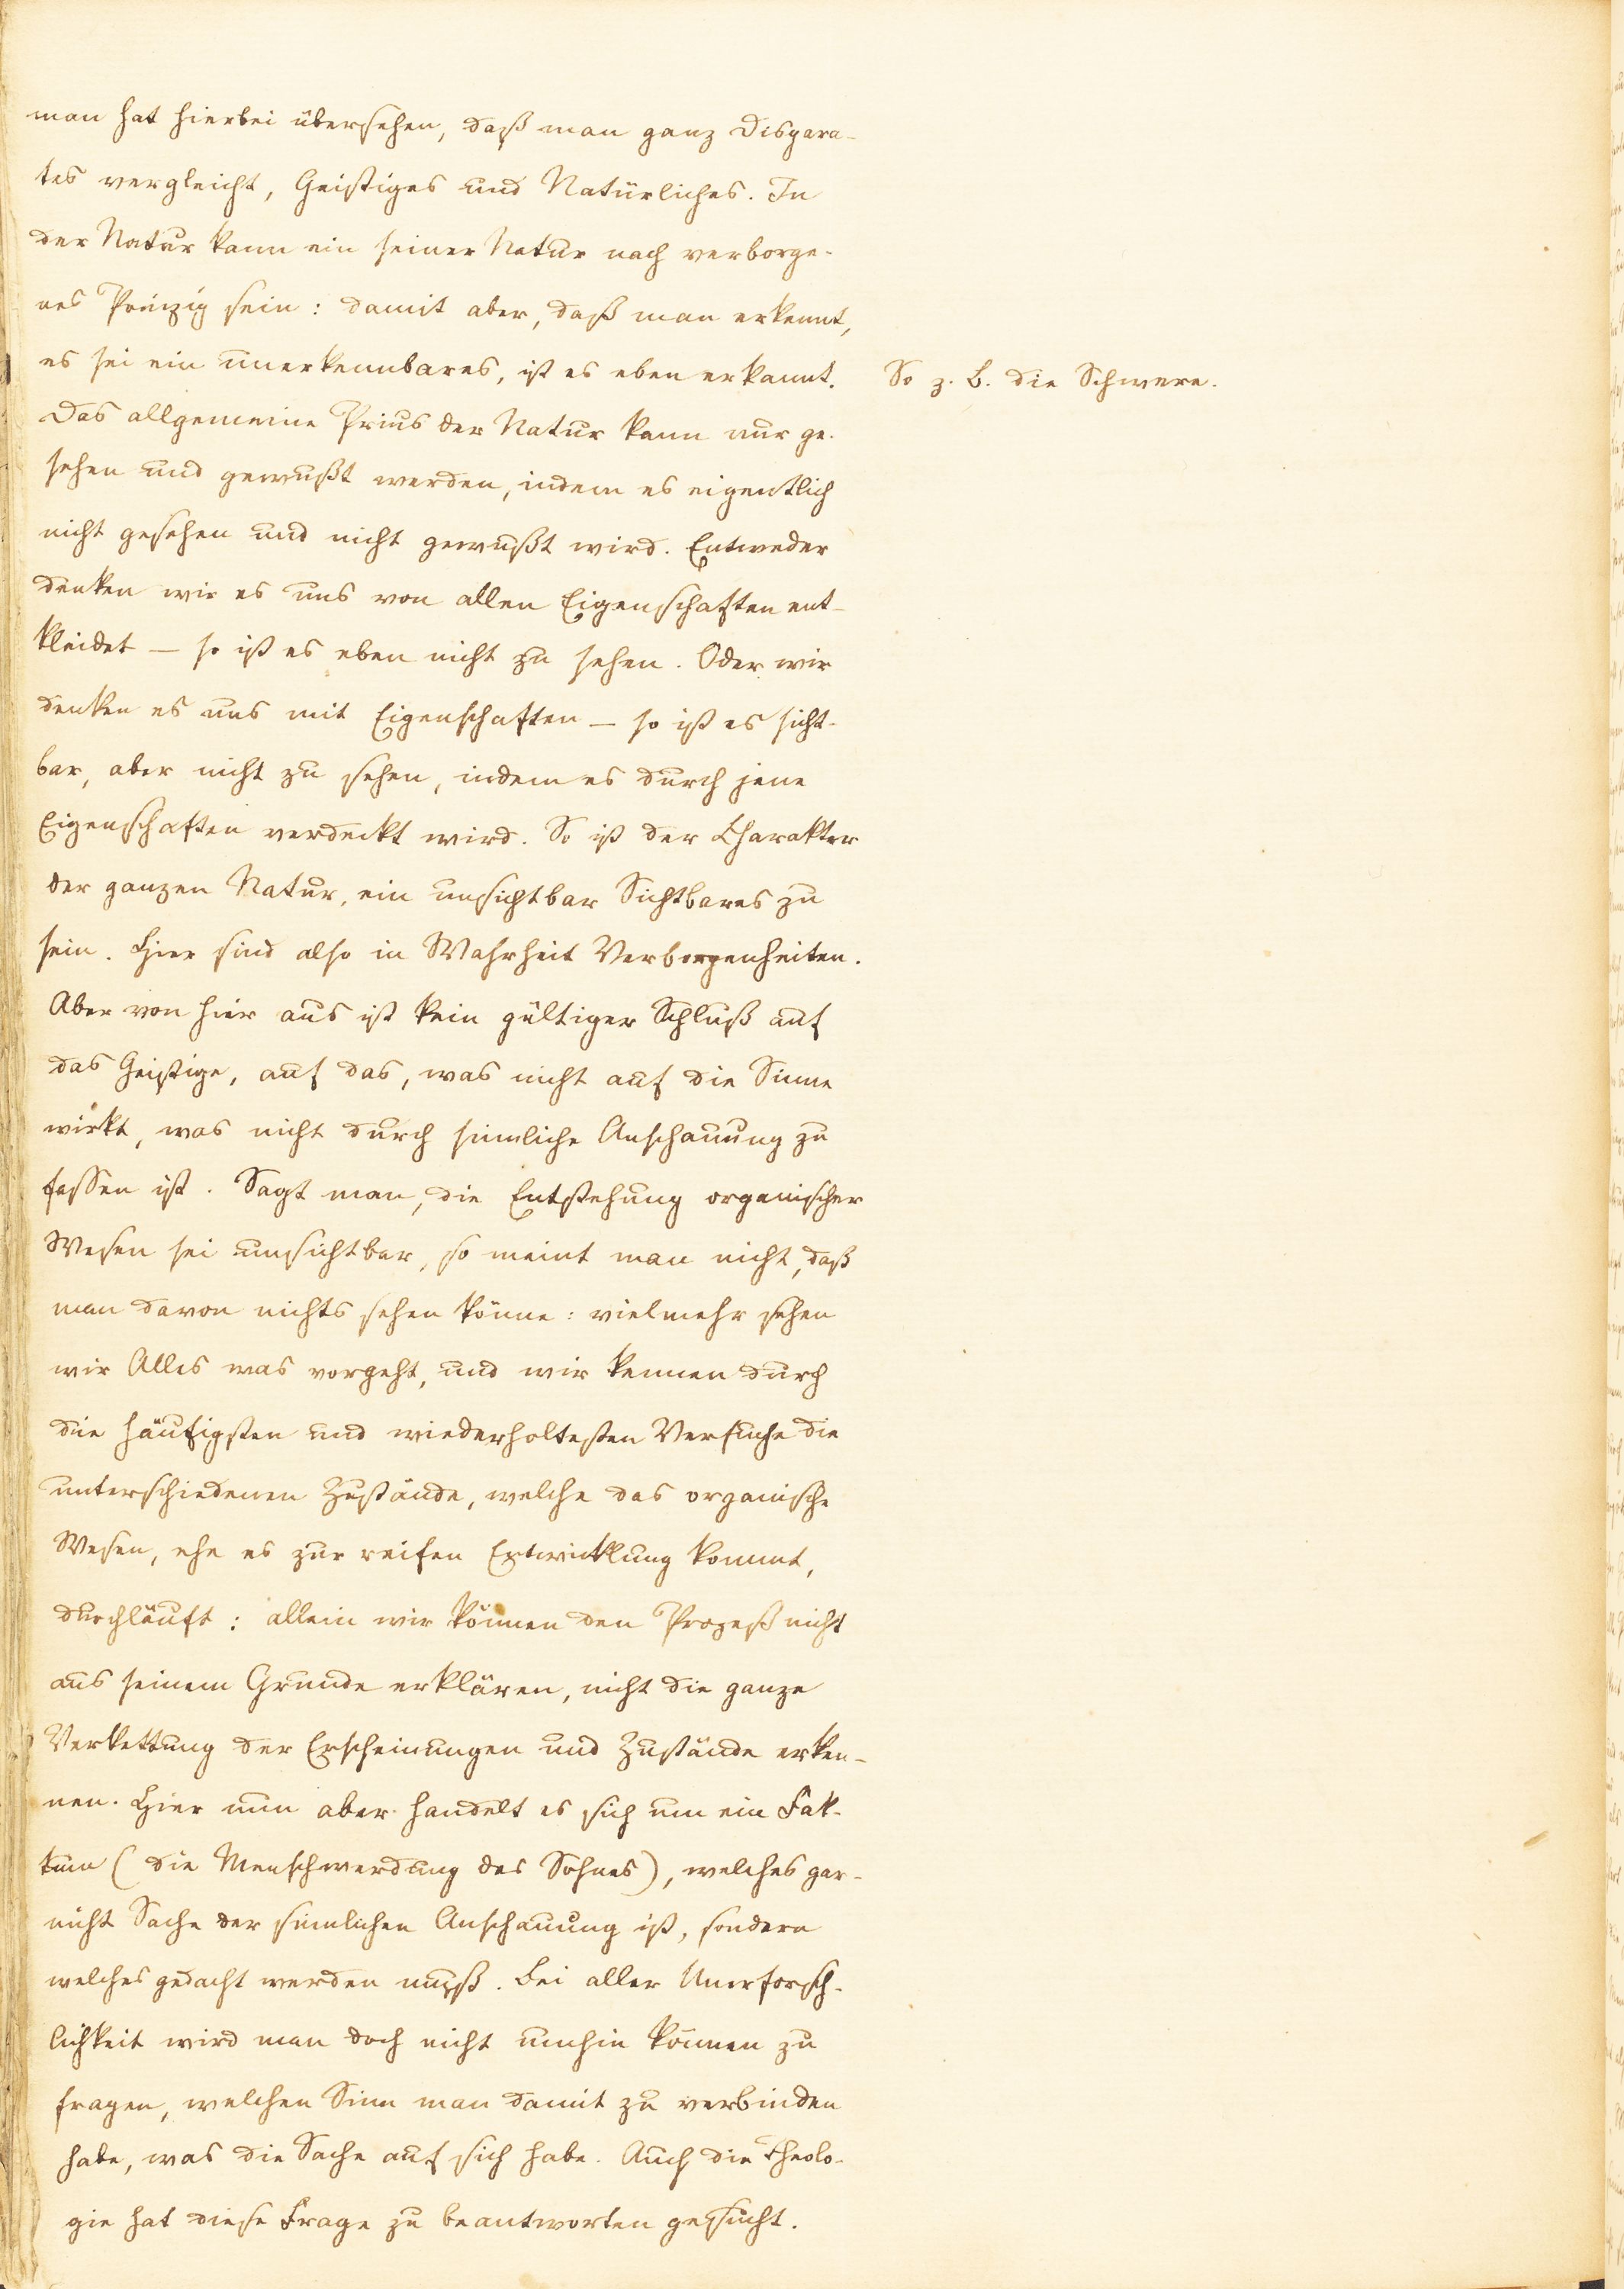 man hat hierbei übersehen, daß man ganz Dispara-
tes vergleicht, Geistiges und Natürliches. In
der Natur kann ein seiner Natur nach verborge-
nes Prinzip sein: damit aber, daß man erkennt,
es sei ein unerkennbares, ist es eben erkannt.
So z. B. die Schwere.
Das allgemeine Prius der Natur kann nur ge-
sehen und gewußt werden, indem es eigentlich
nicht gesehen und nicht gewußt wird. Entweder
denken wir es uns von allen Eigenschaften ent-
kleidet – so ist es eben nicht zu sehen. Oder wir
denken es uns mit Eigenschaften – so ist es sicht-
bar, aber nicht zu sehen, indem es durch jene
Eigenschaften verdeckt wird. So ist der Charakter
der ganzen Natur, ein unsichtbar Sichtbares zu
sein. Hier sind also in Wahrheit Verborgenheiten.
Aber von hier aus ist kein gültiger Schluß auf
das Geistige, auf das, was nicht auf die Sinne
wirkt, was nicht durch sinnliche Anschauung zu
fassen ist. Sagt man, die Entstehung organischer
Wesen sei unsichtbar, so meint man nicht, daß
man davon nichts sehen könne: vielmehr sehen
wir Alles was vorgeht, und wir kennen durch
die häufigsten und wiederholtesten Versuche die
unterschiedenen Zustände, welche das organische
Wesen, ehe es zur reifen Entwicklung kommt,
durchläuft: allein wir können den Prozeß nicht
aus seinem Grunde erklären, nicht die ganze
Verkettung der Erscheinungen und Zustände erken-
nen. Hier nun aber handelt es sich um ein Fak-
tum (die Menschwerdung des Sohnes), welches gar-
nicht Sache der sinnlichen Anschauung ist, sondern
welches gedacht werden muß. Bei aller Unerforsch-
lichkeit wird man doch nicht umhin können zu
fragen, welchen Sinn man damit zu verbinden
habe, was die Sache auf sich habe. Auch die Theolo-
gie hat diese Frage zu beantworten gesucht.